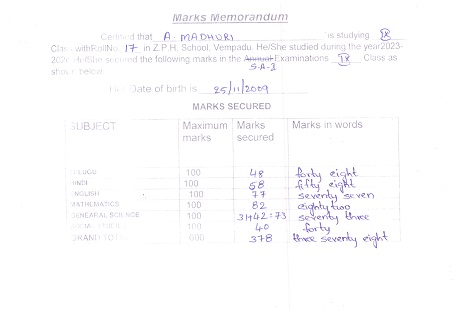 Marks Memorandum
Certified that A. MADHURI is studying IX
Class with Roll No. 17 in Z.P.H. School, Vempadu. He/She studied during the year 2023-
He/She secured the following marks in the Annual Examinations IX Class as
S.A-I
shown below.
Date of birth is 25/11/2009
MARKS SECURED
SUBJECT Maximum marks Marks secured Marks in words
TELUGU 100 48 forty eight
HINDI 100 58 fifty eight
ENGLISH 100 77 seventy seven
MATHEMATICS 100 82 eighty two
GENEARAL SCIENCE 100 31+42=73 seventy three
SOCIAL STUDIES 100 40 forty
GRAND TOTAL 600 378 three seventy eight